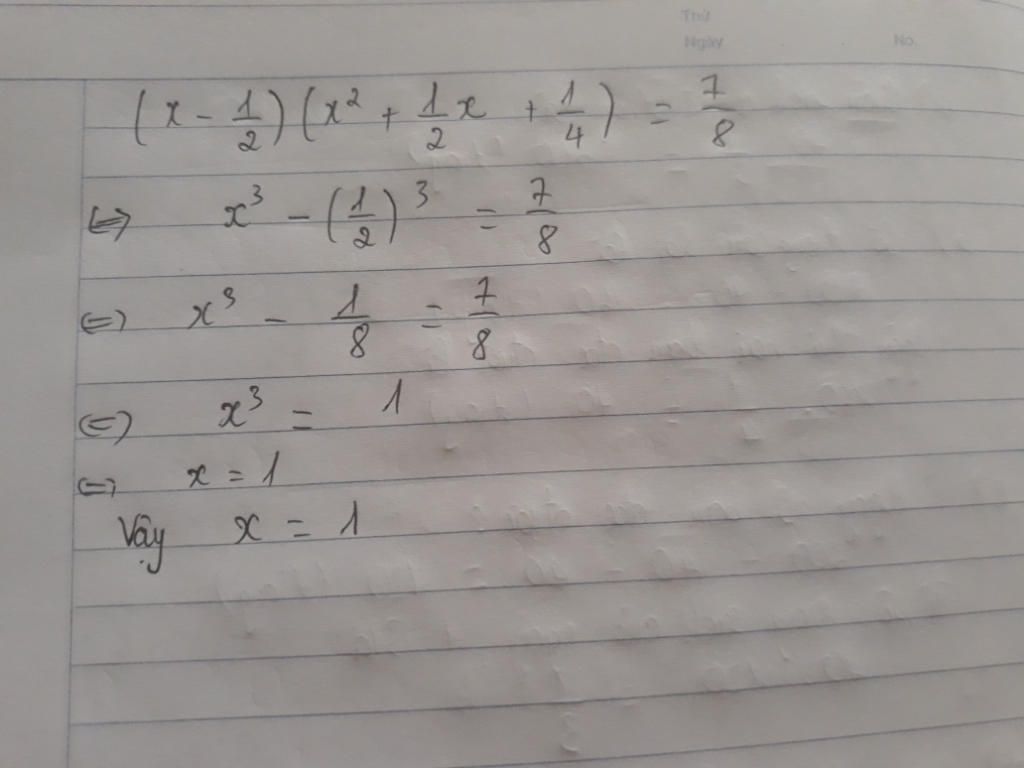 Thứ
Ngày No.
(x - 1/2)(x² + 1/2 x + 1/4) = 7/8
⇔ x³ - (1/2)³ = 7/8
⇔ x³ - 1/8 = 7/8
⇔ x³ = 1
⇔ x = 1
Vậy x = 1